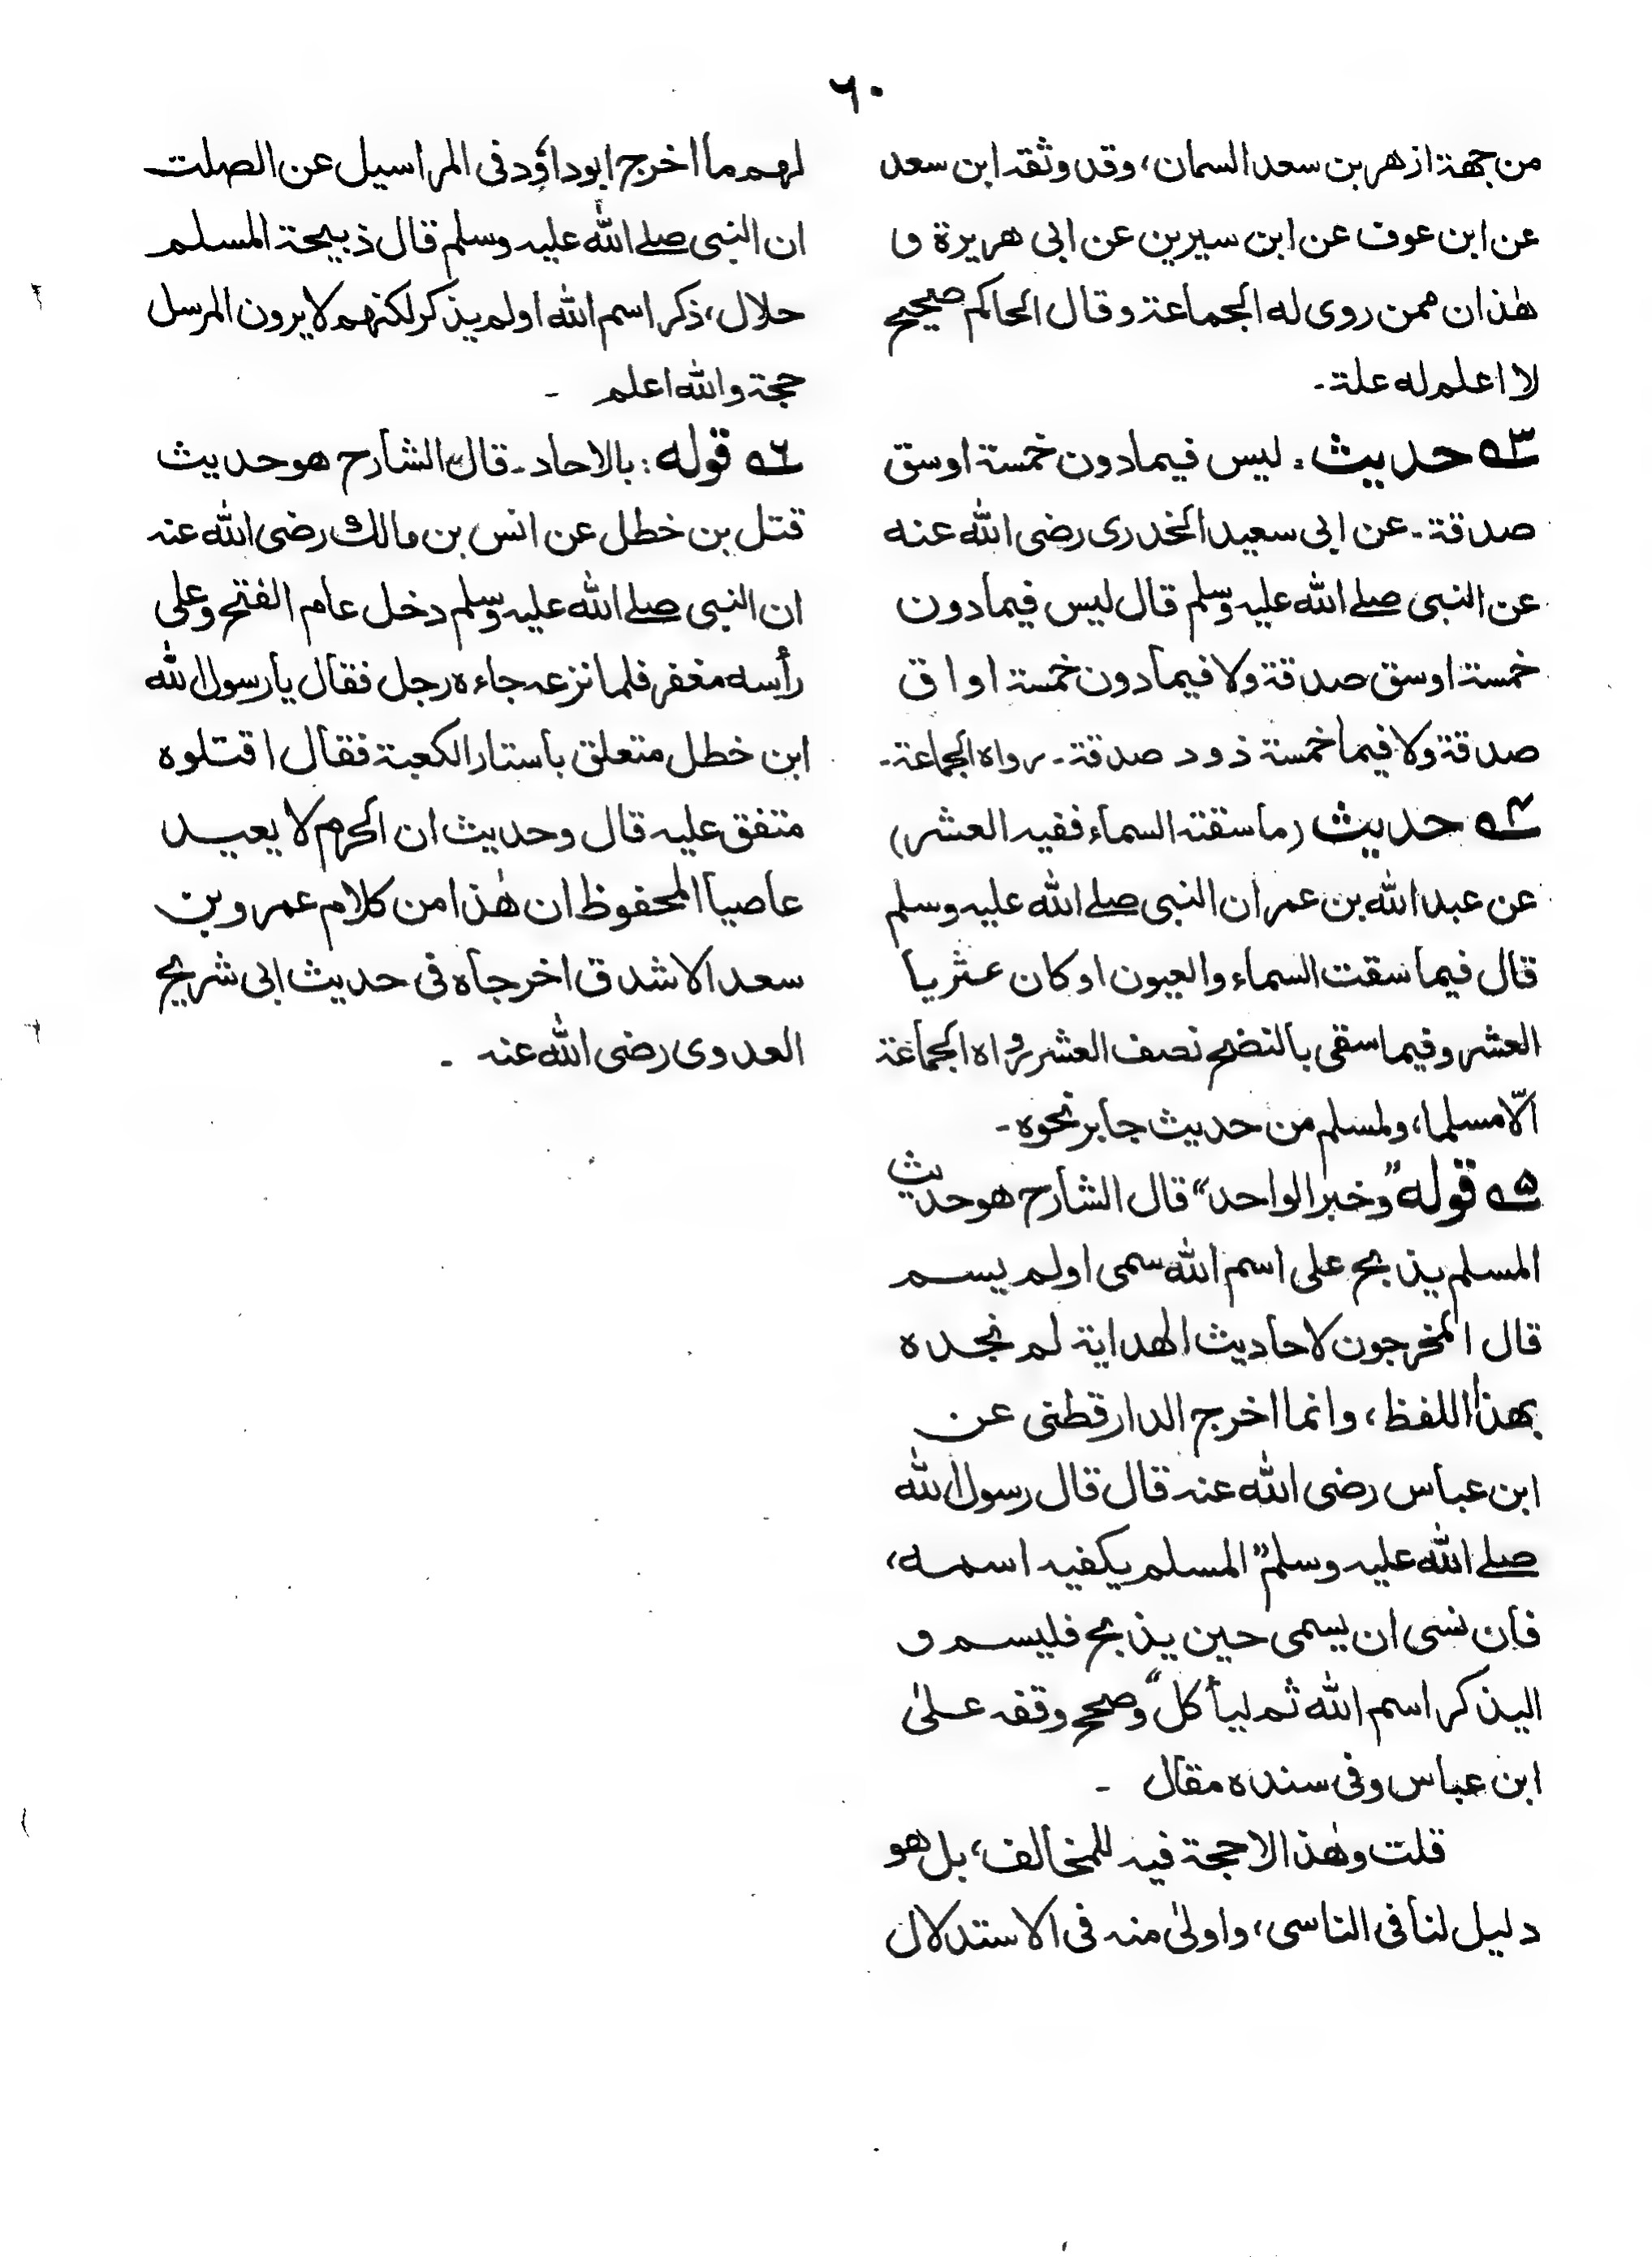 ۶۰
من جهة ازهر بن سعد السمان، وقد وثقه ابن سعد
عن ابن عوف عن ابن سيرين عن ابى هريرة و
هٰذان ممن روى له الجماعة وقال الحاكم صحيح
لا اعلم له علة۔
۵۳ حديث: ليس فيما دون خمسة اوسق
صدقة۔ عن ابى سعيد الخدرى رضى الله عنه
عن النبى صلے الله عليه وسلم قال ليس فيما دون
خمسة اوسق صدقة ولا فيما دون خمسة اواق
صدقة ولا فيما خمسة ذود صدقة۔ رواه الجماعة۔
۵۴ حديث (ما سقته السماء ففيه العشر)
عن عبد الله بن عمر ان النبى صلے الله عليه وسلم
قال فيما سقت السماء والعيون اوكان عثريا
العشر وفيما سقى بالنضح نصف العشر رواه الجماعة
الّا مسلما، ولمسلم من حديث جابر نحوه۔
۵۵ قوله "وخبر الواحد" قال الشارح هو حديث
المسلم يذبح على اسم الله سمى اولم يسم
قال المخرجون لاحاديث الهداية لم نجده
بهذا اللفظ، وانما اخرج الدارقطنى عن
ابن عباس رضى الله عنه قال قال رسول الله
صلے الله عليه وسلم "المسلم يكفيه اسمه،
فان نسى ان يسمى حين يذبح فليسم و
اليذكر اسم الله ثم ليأكل" وصحح وقفه علىٰ
ابن عباس وفى سنده مقال ۔
قلت وهٰذا لاحجة فيه للمخالف، بل هو
دليل لنا فى الناسى، واولىٰ منه فى الاستدلال
لهم ما اخرج ابوداؤد فى المراسيل عن الصلت
ان النبى صلے الله عليه وسلم قال ذبيحة المسلم
حلال، ذكر اسم الله اولم يذكر لكنهم لايرون المرسل
حجة والله اعلم ۔
۵۶ قوله: بالاحاد۔ قال الشارح هو حديث
قتل بن خطل عن انس بن مالك رضى الله عنه
ان النبى صلے الله عليه وسلم دخل عام الفتح وعلى
رأسه مغفر فلما نزعه جاءه رجل فقال يا رسول الله
ابن خطل متعلق باستار الكعبة فقال اقتلوه
متفق عليه قال وحديث ان الحرم لا يعيد
عاصيا المحفوظ ان هٰذا من كلام عمرو بن
سعد الاشدق اخرجاه فى حديث ابى شريح
العدوى رضى الله عنه ۔